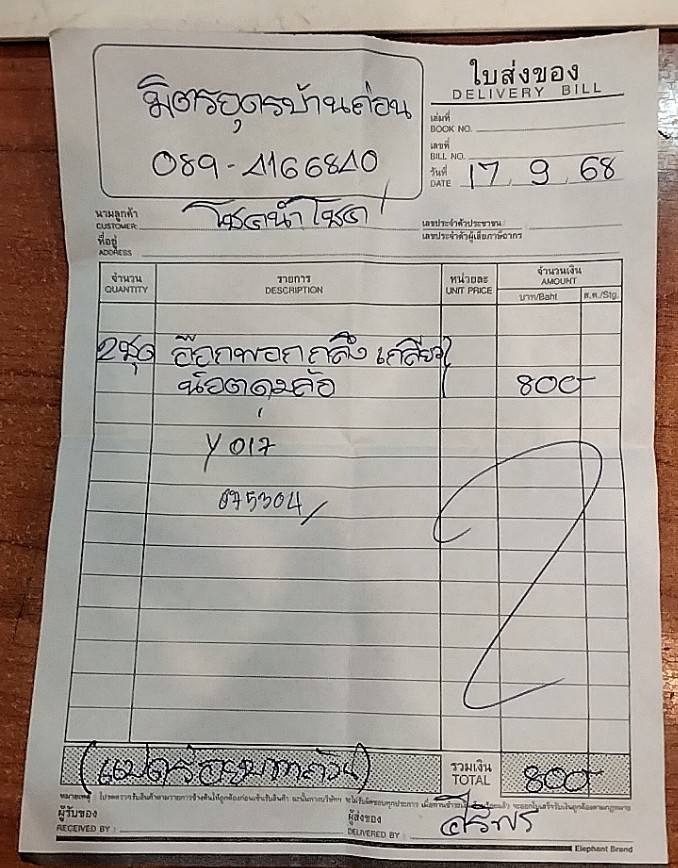 มิตรอุดรบ้านค่อน
089-4166840
ใบส่งของ
DELIVERY BILL
เล่มที่
BOOK NO.
เลขที่
BILL NO.
วันที่
DATE 17, 9, 68
นามลูกค้า
CUSTOMER โชคนำโชค
ที่อยู่
ADDRESS
เลขประจำตัวประชาชน
เลขประจำตัวผู้เสียภาษีอากร
จำนวน
QUANTITY
รายการ
DESCRIPTION
หน่วยละ
UNIT PRICE
จำนวนเงิน
AMOUNT
บาท/Baht
ส.ต./Stg.
2ชุด อ๊อกพอกกลึงเกลียว
น๊อตดุมล้อ 800-
Y 017
075304/
(แปดร้อยบาทถ้วน)
รวมเงิน
TOTAL
800-
ผู้รับของ
RECEIVED BY :
ผู้ส่งของ
DELIVERED BY : ศิริพร
Elephant Brand